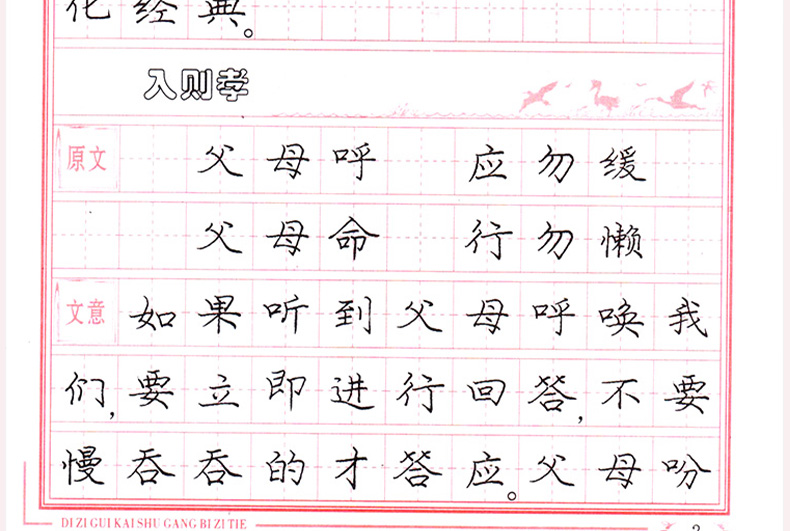 化经典。
入则孝
原文 父母呼 应勿缓
父母命 行勿懒
文意 如果听到父母呼唤我
们,要立即进行回答,不要
慢吞吞的才答应。父母吩
DI ZI GUI KAI SHU GANG BI ZI TIE
3